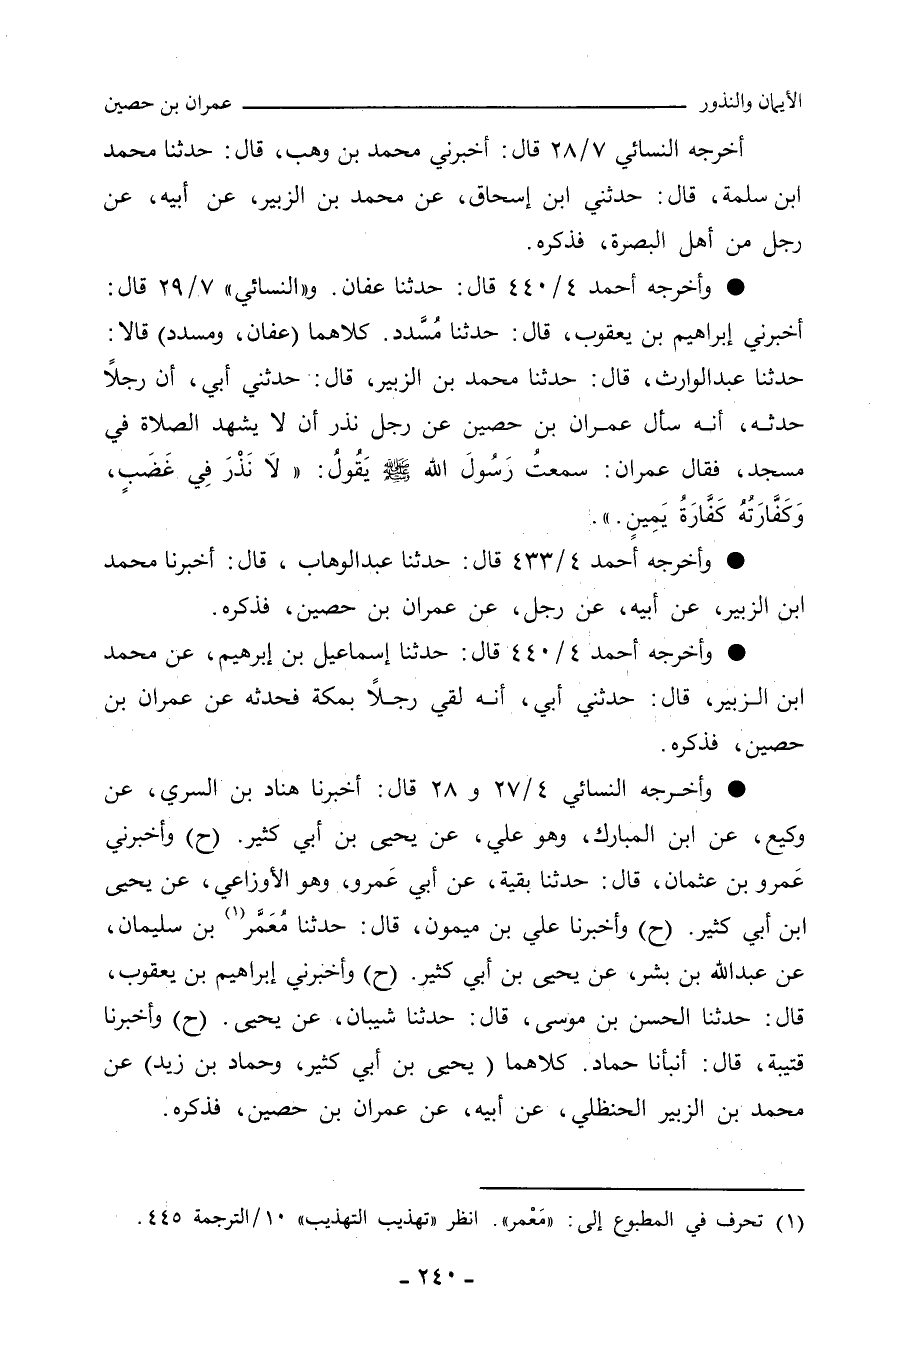 الأيمان والنذور ــــــــــــــــــــ عمران بن حصين
أخرجه النسائي ٢٨/٧ قال: أخبرني محمد بن وهب، قال: حدثنا محمد
ابن سلمة، قال: حدثني ابن إسحاق، عن محمد بن الزبير، عن أبيه، عن
رجل من أهل البصرة، فذكره.
● وأخرجه أحمد ٤٤٠/٤ قال: حدثنا عفان. و«النسائي» ٢٩/٧ قال:
أخبرني إبراهيم بن يعقوب، قال: حدثنا مُسَّدد. كلاهما (عفان، ومسدد) قالا:
حدثنا عبدالوارث، قال: حدثنا محمد بن الزبير، قال: حدثني أبي، أن رجلاً
حدثه، أنه سأل عمران بن حصين عن رجل نذر أن لا يشهد الصلاة في
مسجد، فقال عمران: سمعتُ رَسُولَ الله ﷺ يَقُولُ: « لَا نَذْرَ فِي غَضَبٍ،
وَكَفَّارَتُهُ كَفَّارَةُ يَمِينٍ.».
● وأخرجه أحمد ٤٣٣/٤ قال: حدثنا عبدالوهاب ، قال: أخبرنا محمد
ابن الزبير، عن أبيه، عن رجل، عن عمران بن حصين، فذكره.
● وأخرجه أحمد ٤٤٠/٤ قال: حدثنا إسماعيل بن إبرهيم، عن محمد
ابن الزبير، قال: حدثني أبي، أنه لقي رجلاً بمكة فحدثه عن عمران بن
حصين، فذكره.
● وأخرجه النسائي ٢٧/٤ و ٢٨ قال: أخبرنا هناد بن السري، عن
وكيع، عن ابن المبارك، وهو علي، عن يحيى بن أبي كثير. (ح) وأخبرني
عَمرو بن عثمان، قال: حدثنا بقية، عن أبي عَمرو، وهو الأوزاعي، عن يحيى
ابن أبي كثير. (ح) وأخبرنا علي بن ميمون، قال: حدثنا مُعَمَّر(١) بن سليمان،
عن عبدالله بن بشر، عن يحيى بن أبي كثير. (ح) وأخبرني إبراهيم بن يعقوب،
قال: حدثنا الحسن بن موسى، قال: حدثنا شيبان، عن يحيى. (ح) وأخبرنا
قتيبة، قال: أنبأنا حماد. كلاهما ( يحيى بن أبي كثير، وحماد بن زيد) عن
محمد بن الزبير الحنظلي، عن أبيه، عن عمران بن حصين، فذكره.
(١) تحرف في المطبوع إلى: «مَعْمر». انظر «تهذيب التهذيب» ١٠/الترجمة ٤٤٥.
- ٢٤٠ -